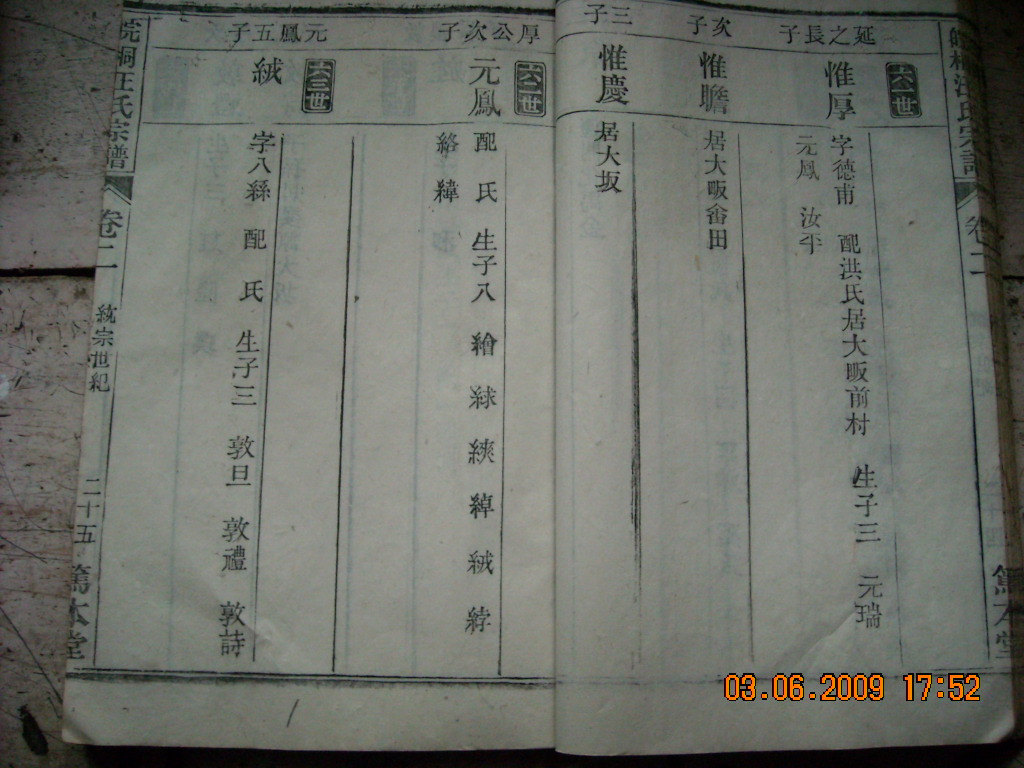 延之長子
六一世
惟厚
字德甫 配洪氏居大畈前村 生子三 元瑞
元鳳 汝平
次子
惟瞻
居大畈畬田
三子
惟慶
居大坂
厚公次子
六二世
元鳳
配 氏 生子八 繪 絿 緛 綽 絨 綍
絡 緯
元鳳五子
六三世
絨
字八絲 配 氏 生子三 敦旦 敦禮 敦詩
皖桐汪氏宗譜
卷二
統宗世紀
二十五
篤本堂
卷二
篤本堂
03.06.2009 17:52